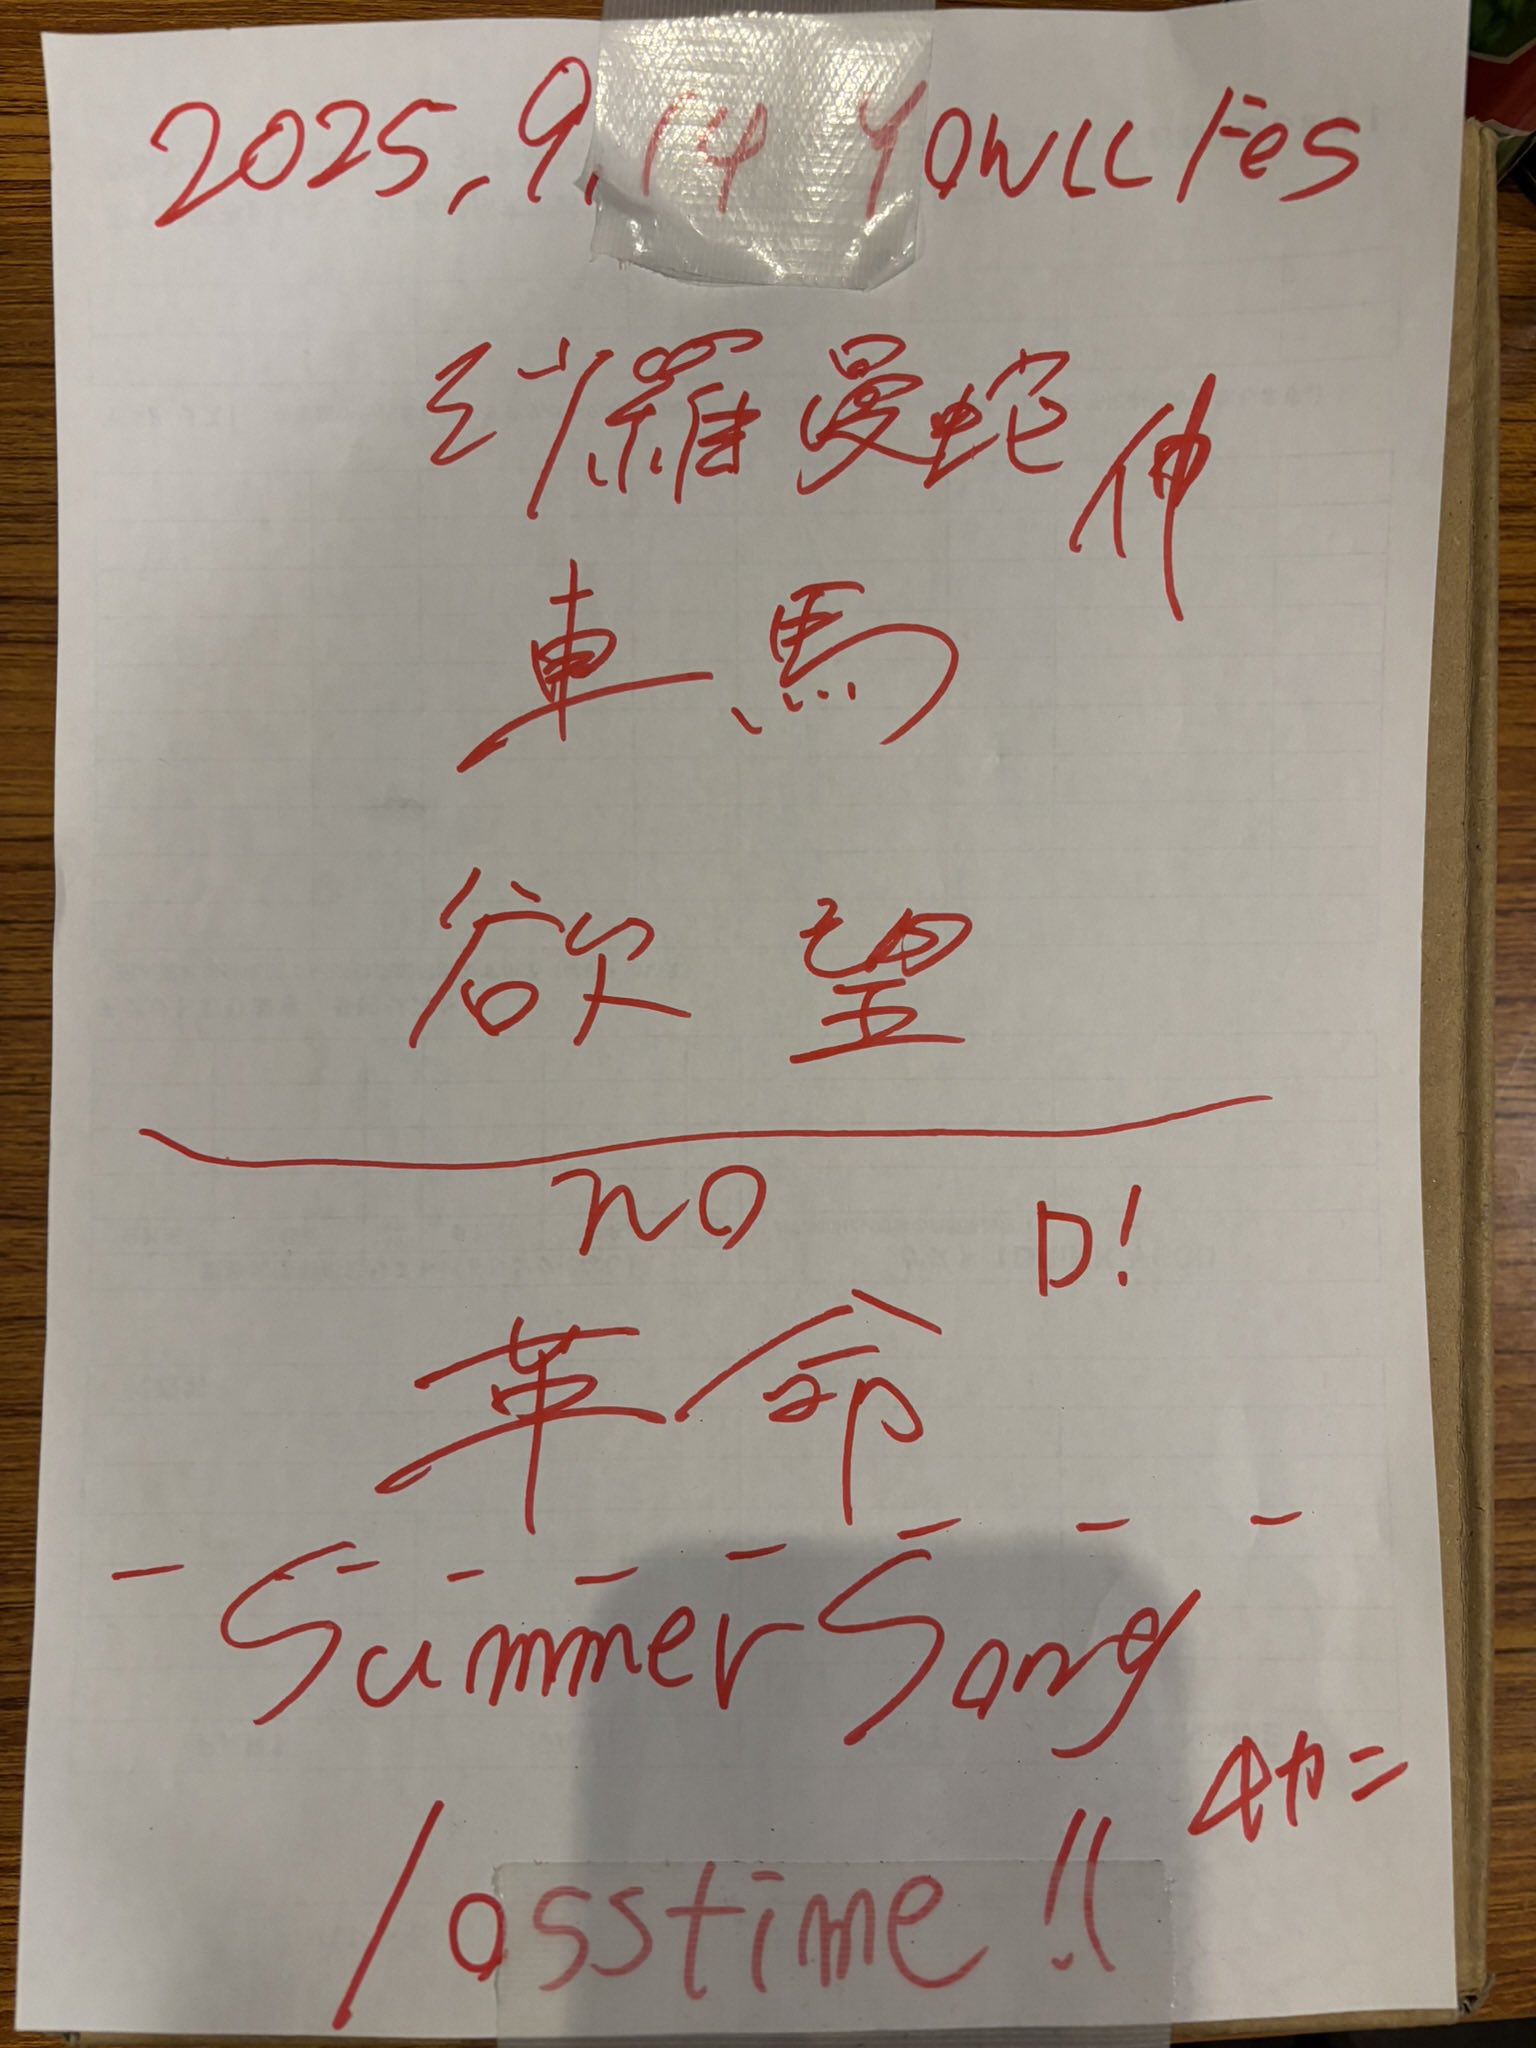 2025.9.14 YOWLL Fes
沙羅曼蛇 伸
車馬
欲望
NO
D!
革命
Summer Song
4カニ
losstime!!